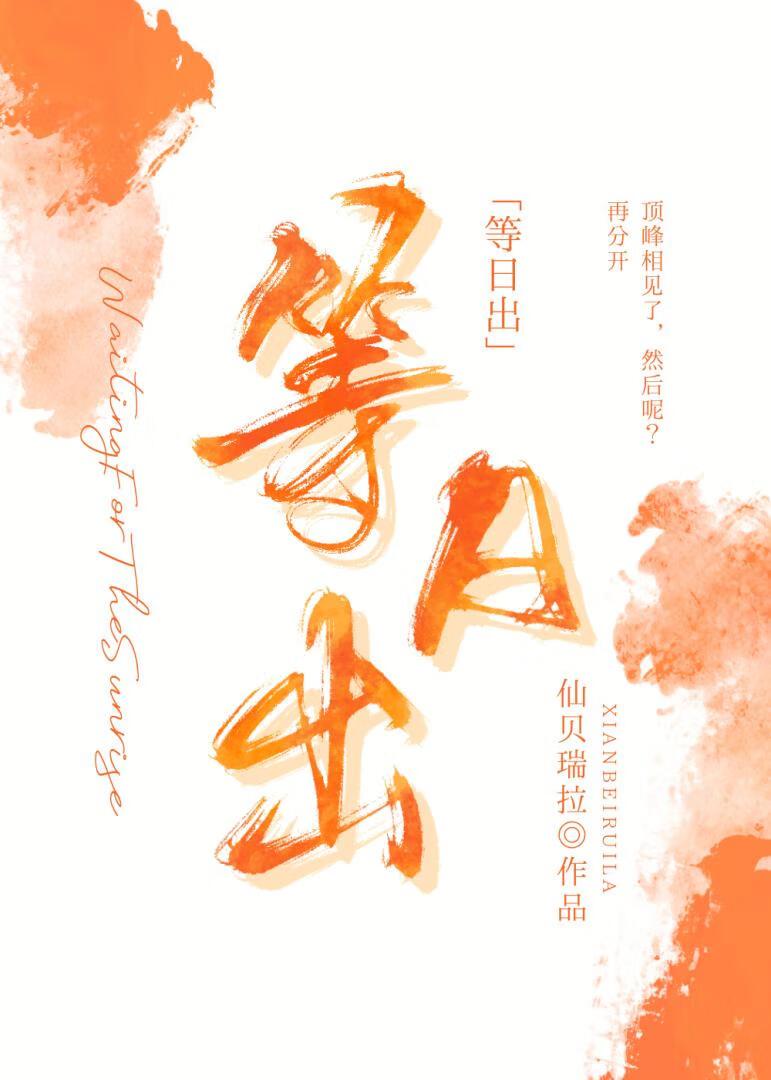 顶峰相见了，然后呢？
再分开
「等日出」
等日出
仙贝瑞拉◎作品
XIANBEIRUILA
Waiting For The Sunrise